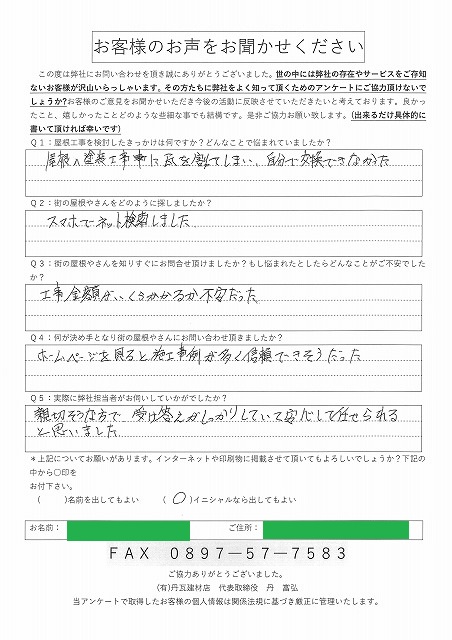 お客様のお声をお聞かせください
この度は弊社にお問い合わせを頂き誠にありがとうございました。世の中には弊社の存在やサービスをご存知
ないお客様が沢山いらっしゃいます。その方たちに弊社をよく知って頂くためのアンケートにご協力頂けないで
しょうか?お客様のご意見をお聞かせいただき今後の活動に反映させていただきたいと考えております。良かっ
たこと、嬉しかったことどのような些細な事でも結構です。是非ご協力お願い致します。(出来るだけ具体的に
書いて頂ければ幸いです)
Q１：屋根工事を検討したきっかけは何ですか？どんなことで悩まれていましたか？
屋根の塗装工事中に瓦を割ってしまい、自分で交換できなかった
Q２：街の屋根やさんをどのように探しましたか？
スマホでネット検索しました
Q３：街の屋根やさんを知りすぐにお問合せ頂けましたか？もし悩まれたとしたらどんなことがご不安でした
か？
工事金額がいくらかかるか不安だった
Q４：何が決め手となり街の屋根やさんにお問い合わせ頂きましたか？
ホームページを見ると施工事例が多く信頼できそうだった
Q５：実際に弊社担当者がお伺いしていかがでしたか？
親切そうな方で 受け答えがしっかりしていて安心して任せられる
と思いました
＊上記についてお願いがあります。インターネットや印刷物に掲載させて頂いてもよろしいでしょうか？下記の
中から○印を
お付下さい。
(　　)名前を出してもよい　　(○)イニシャルなら出してもよい
お名前：　　ご住所：
ＦＡＸ　０８９７－５７－７５８３
ご協力ありがとうございました。
(有)丹瓦建材店　代表取締役　丹　富弘
当アンケートで取得したお客様の個人情報は関係法規に基づき厳正に管理いたします。